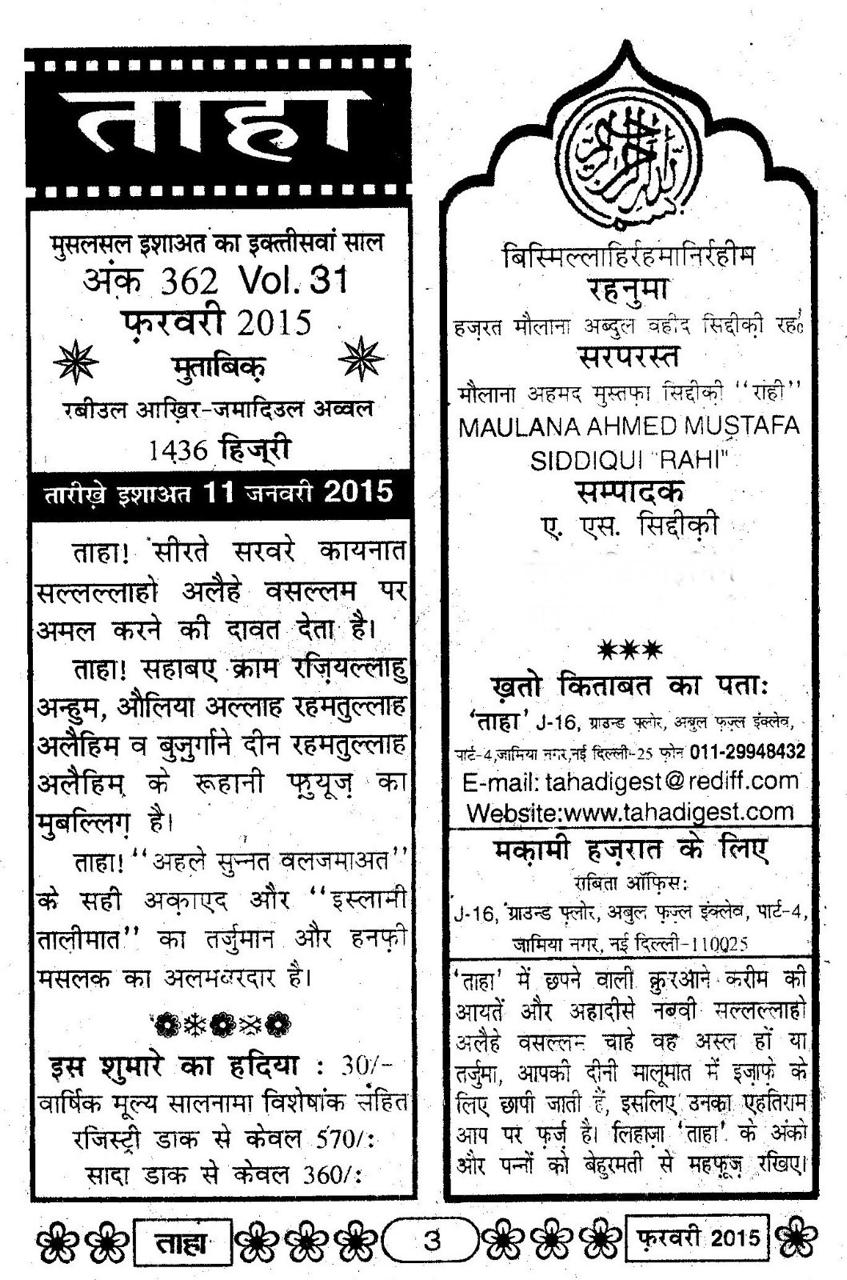 ताहा
मुसलसल इशाअत का इक्तीसवां साल
अंक 362 Vol. 31
फ़रवरी 2015
मुताबिक़
रबीउल आख़िर-जमादिउल अव्वल
1436 हिज्री
तारीख़े इशाअत 11 जनवरी 2015
ताहा! सीरते सरवरे कायनात
सल्लल्लाहो अलैहे वसल्लम पर
अमल करने की दावत देता है।
ताहा! सहाबए क्राम रज़ियल्लाहु
अन्हुम, औलिया अल्लाह रहमतुल्लाह
अलैहिम व बुज़ुर्गाने दीन रहमतुल्लाह
अलैहिम् के रूहानी फ़ुयूज़ का
मुबल्लिग़ है।
ताहा! "अहले सुन्नत वलजमाअत"
के सही अक़ाएद और "इस्लामी
तालीमात" का तर्जुमान और हनफ़ी
मसलक का अलमबरदार है।
इस शुमारे का हदिया : 30/-
वार्षिक मूल्य सालनामा विशेषांक संहित
रजिस्ट्री डाक से केवल 570/:
सादा डाक से केवल 360/:
बिस्मिल्लाहिर्रहमानिर्रहीम
रहनुमा
हज़रत मौलाना अब्दुल वहीद सिद्दीक़ी रह०
सरपरस्त
मौलाना अहमद मुस्तफ़ा सिद्दीक़ी "राही"
MAULANA AHMED MUSTAFA
SIDDIQUI "RAHI"
सम्पादक
ए. एस. सिद्दीक़ी
***
ख़तो किताबत का पता:
'ताहा' J-16, ग्राउन्ड फ़्लोर, अबुल फज़्ल इंक्लेव,
पार्ट-4,जामिया नगर,नई दिल्ली-25 फोन 011-29948432
E-mail: tahadigest@rediff.com
Website:www.tahadigest.com
मक़ामी हज़रात के लिए
राबिता ऑफिस:
J-16, ग्राउन्ड फ़्लोर, अबुल फज़्ल इंक्लेव, पार्ट-4,
जामिया नगर, नई दिल्ली-110025
'ताहा' में छपने वाली क़ुरआने करीम की
आयतें और अहादीसे नबवी सल्लल्लाहो
अलैहे वसल्लम चाहे वह अस्ल हों या
तर्जुमा, आपकी दीनी मालूमात में इज़ाफ़े के
लिए छापी जाती हैं, इसलिए उनका एहतिराम
आप पर फ़र्ज़ है। लिहाज़ा 'ताहा' के अंको
और पन्नों को बेहुरमती से महफ़ूज़ रखिए।
ताहा 3 फ़रवरी 2015